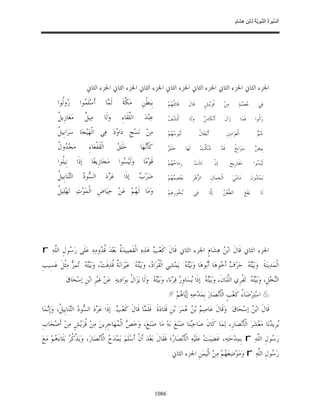 السّيرَة النّبَويّة لابْن هشام
الجزء الثاني الجزء الثاني الجزء الثاني الجزء الثاني الجزء الثاني الجزء الثاني الجزء الثاني
فِي عُصْبَةٍ مِنْ قُرَيْشٍ قَالَ قَائِلُهُمْ بِبَطْنِ مَكّةَ لَمّا أَسْلَمُوا زُولُوا
زَالُوا فَمَا زَالَ أَنْكَاسٌ وَلَا كُشُفٌ عِنْدَ اللّقَاءِ وَلَا مِيلٌ مَعَازِيلُ
شُمّ الْعَرَانِينِ أَبْطَالٌ لَبُوسُهُمْ مِنْ نَسْجِ دَاوُدَ فِي الْهَيْجَا سَرَابِيلُ
بِيضٌ سَوَابِغُ قَدْ شُكّتْ لَهَا حَلَقٌ كَأَنّهَا حَلَقُ الْقَفْعَاءِ مَجْدُولُ
لَيْسُوا مَفَارِيحَ إنْ نَالَتْ رِمَاحُهُمْ قَوْمًا وَلَيْسُوا مَجَازِيعًا إذَا نِيلُوا
يَمْشُونَ مَشْيَ الْجِمَالِ الزّهْرِ يَعْصِمُهُمْ ضَرْبٌ إذَا عَرّدَ السّودُ التّنَابِيلُ
لَا يَقَعُ الطّعْنُ إلّا فِي نُحُورِهِمُ وَمَا لَهُمْ عَنْ حِيَاضِ الْمَوْتِ تَهْلِيلُ
الجزء الثاني قَالَ ابْنُ هِشَامٍ الجزء الثاني قَالَ كَعْبٌ هَذِهِ الْقَصِيدَةُ بَعْدَ قُدُومِهِ عَلَى رَسُولِ اللّهِ
الْمَدِينَةَ وَبَيْتُهُ حَرْفٌ أَخُوهَا أَبُوهَا وَبَيْتُهُ يَمْشِي الْقُرَادُ، وَبَيْتُهُ عَيْرَانَةٌ قُذِفَتْ، وَبَيْتُهُ تُمِرّ مِثْلَ عَسِيبِ
النّخْلِ، وَبَيْتُهُ تَفْرِي اللّبَانَ، وَبَيْتُهُ إذَا يُسَاوِرُ قِرْنًا، وَبَيْتُهُ وَلَا يَزَالُ بِوَادِيهِ عَنْ غَيْرِ ابْنِ إسْحَاقَ
اسْتِرْضَاءُ كَعْبٍ الْأَنْصَارَ بِمَدْحِهِ إيّاهُمْ
قَالَ ابْنُ إسْحَاقَ وَقَالَ عَاصِمُ بْنُ عُمَرَ بْنِ قَتَادَةَ فَلَمّا قَالَ كَعْبٌ إذَا عَرّدَ السّودُ التّنَابِيلُ، وَإِنّمَا
يُرِيدُنَا مَعْشَرَ الْأَنْصَارِ، لِمَا كَانَ صَاحِبُنَا صَنَعَ بَهْ مَا صَنَعَ، وَخَصّ الْمُهَاجِرِينَ مِنْ قُرَيْشٍ مِنْ أَصْحَابِ
رَسُولِ اللّهِ بِمِدْحَتِهِ، غَضِبَتْ عَلَيْهِ الْأَنْصَارُ؛ فَقَالَ بَعْدَ أَنْ أَسْلَمَ يَمْدَحُ الْأَنْصَارَ، وَيَذْكُرُ بَلَاءَهُمْ مَعَ
رَسُولِ اللّهِ وَمَوْضِعَهُمْ مِنْ الْيَمَنِ الجزء الثاني
1086